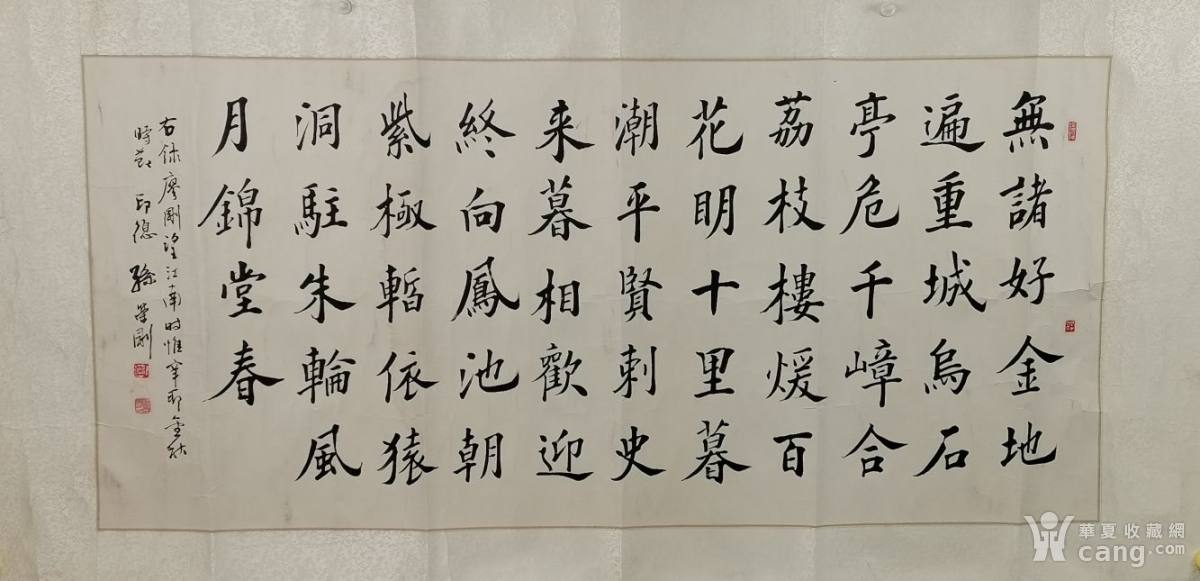 無諸好金地
遍重城烏石
亭危千嶂合
荔枝樓煖百
花明十里暮
潮平賢刺史
来暮相歡迎
終向鳳池朝
紫極暫依猿
洞駐朱輪風
月錦堂春
右録廖剛望江南時惟辛卯金秋
時節
華夏收藏網
cang.com